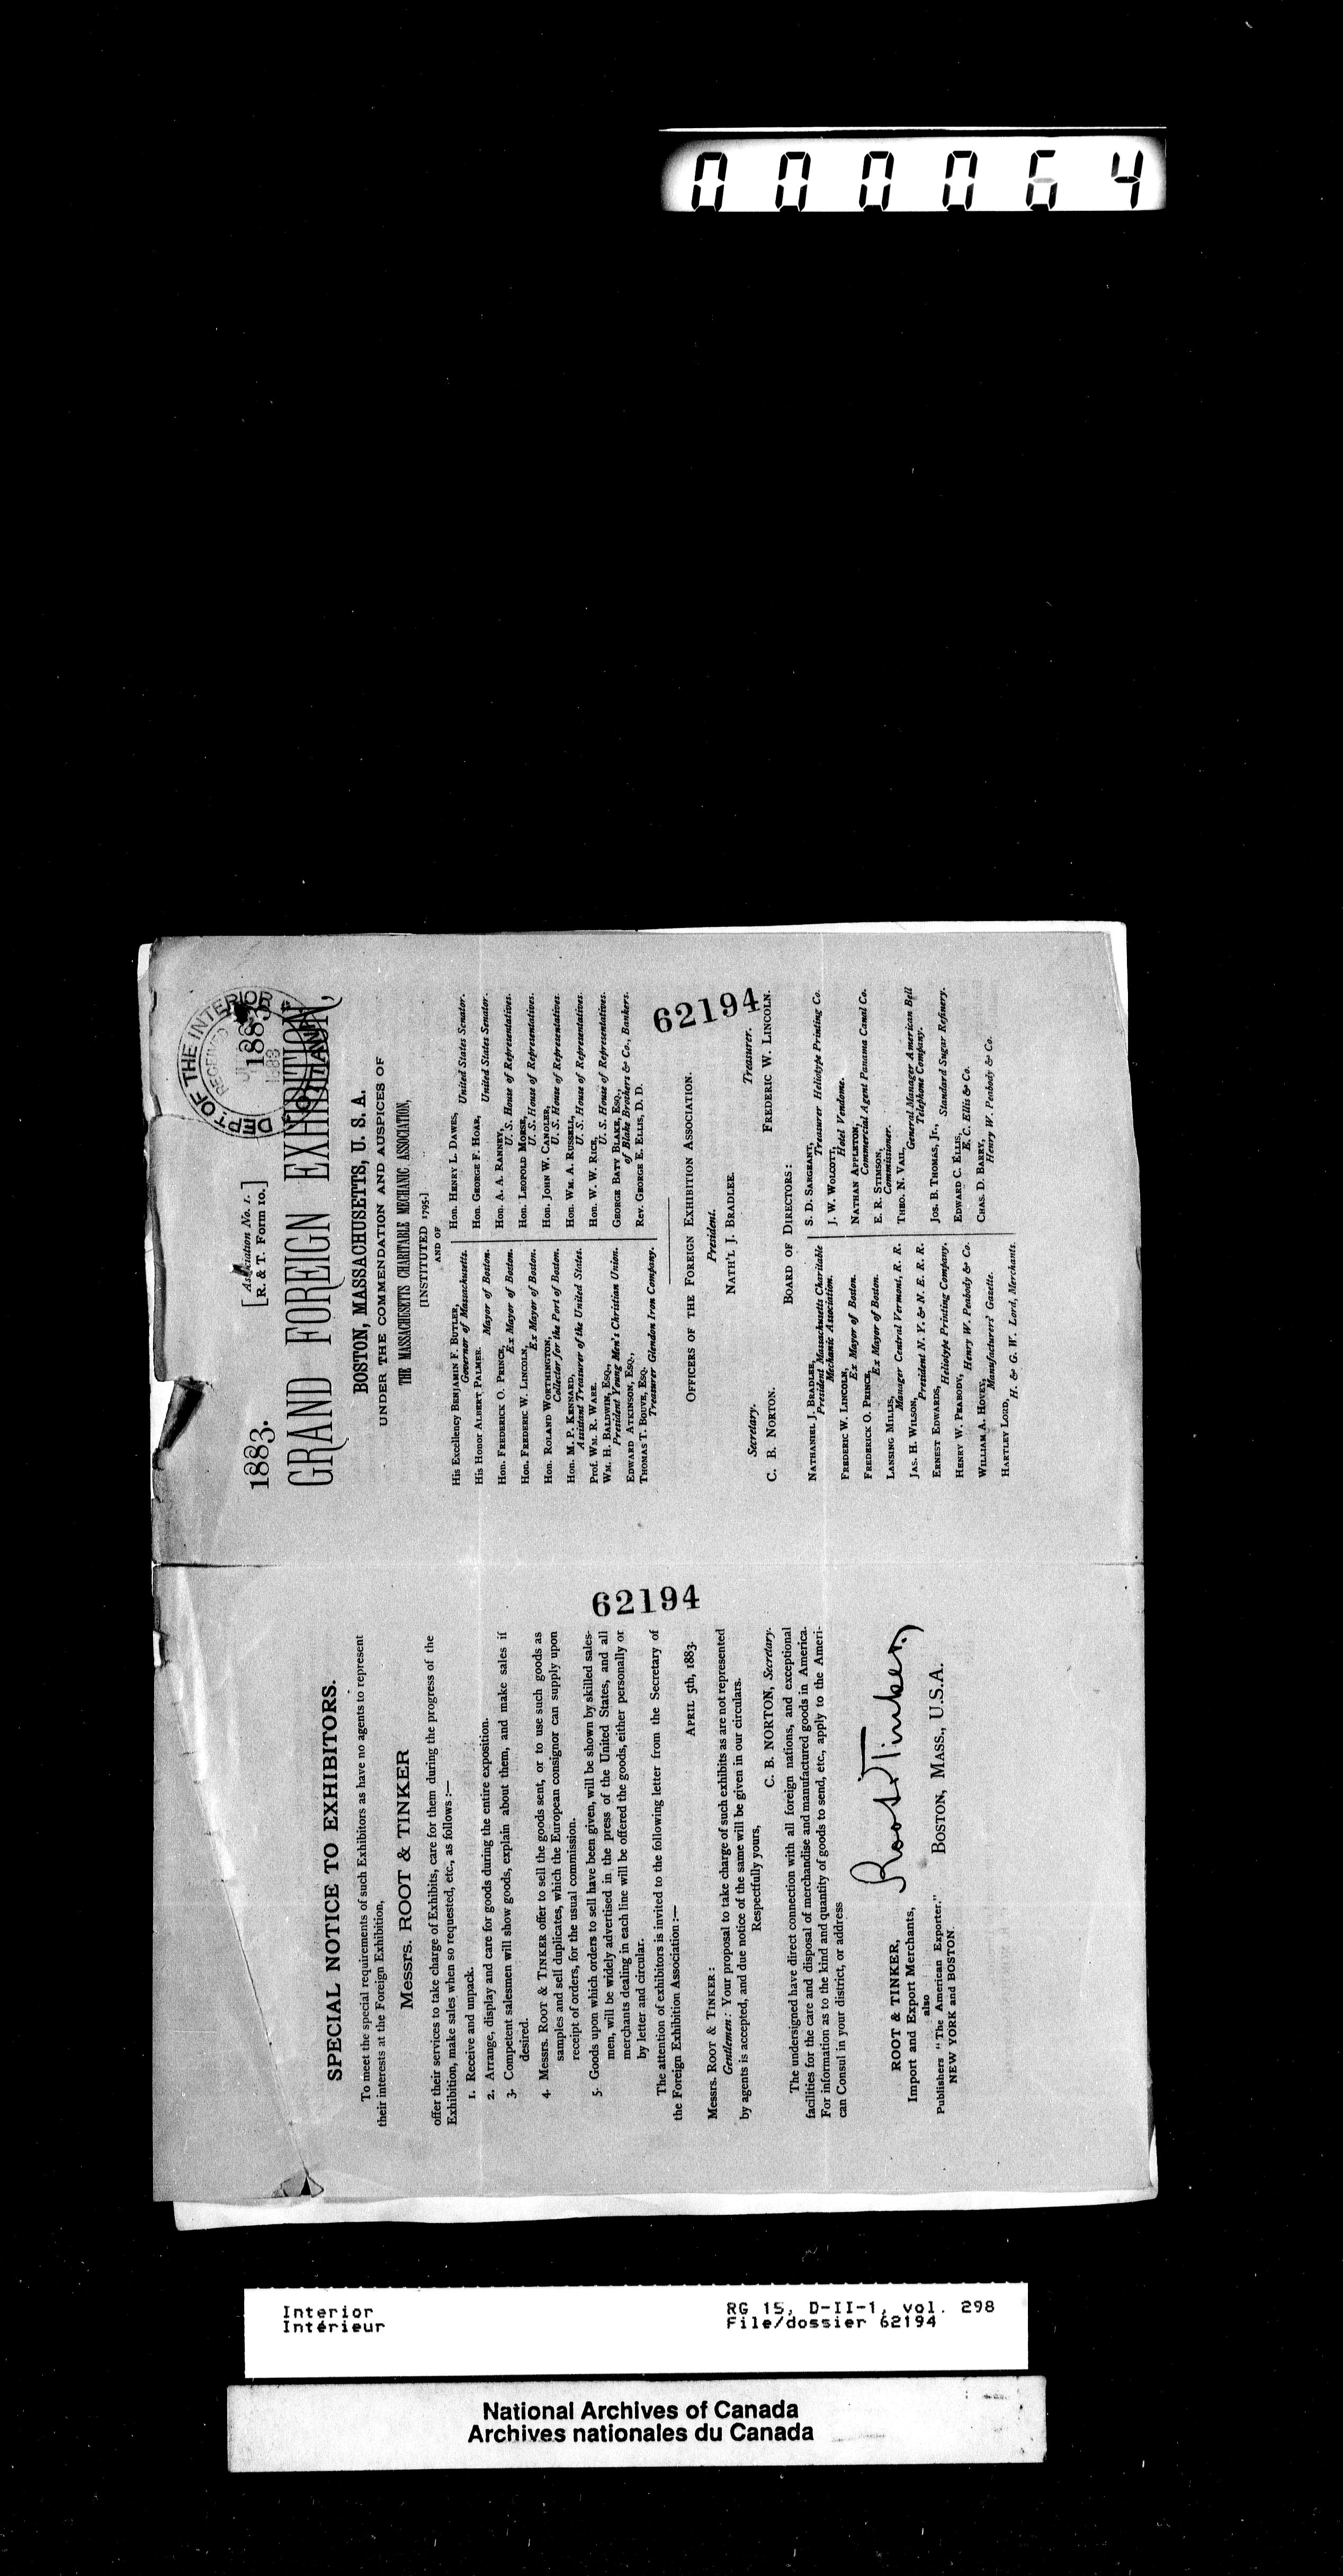 000064
SPECIAL NOTICE TO EXHIBITORS.
To meet the special requirements of such Exhibitors as have no agents to represent
their interests at the Foreign Exhibition,
Messrs. ROOT & TINKER
offer their services to take charge of Exhibits, care for them during the progress of the
Exhibition, make sales when so requested, etc., as follows :—
1. Receive and unpack.
2. Arrange, display and care for goods during the entire exposition.
3. Competent salesmen will show goods, explain about them, and make sales if
desired.
4. Messrs. ROOT & TINKER offer to sell the goods sent, or to use such goods as
samples and sell duplicates, which the European consignor can supply upon
receipt of orders, for the usual commission.
5. Goods upon which orders to sell have been given, will be shown by skilled sales-
men, will be widely advertised in the press of the United States, and all
merchants dealing in each line will be offered the goods, either personally or
by letter and circular.
62194
The attention of exhibitors is invited to the following letter from the Secretary of
the Foreign Exhibition Association :—
APRIL 5th, 1883.
Messrs. ROOT & TINKER :
Gentlemen : Your proposal to take charge of such exhibits as are not represented
by agents is accepted, and due notice of the same will be given in our circulars.
Respectfully yours,
C. B. NORTON, Secretary.
The undersigned have direct connection with all foreign nations, and exceptional
facilities for the care and disposal of merchandise and manufactured goods in America.
For information as to the kind and quantity of goods to send, etc., apply to the Ameri-
can Consul in your district, or address
Root & Tinker
ROOT & TINKER,
Import and Export Merchants,
also
Publishers "The American Exporter."
NEW YORK and BOSTON.
BOSTON, MASS., U.S.A.
DEPT OF THE INTERIOR
1883
OTTAWA
[Association No. 1.
[R. & T. Form 10.]
1883. 1883.
GRAND FOREIGN EXHIBITION,
BOSTON, MASSACHUSETTS, U. S. A.
UNDER THE COMMENDATION AND AUSPICES OF
THE MASSACHUSETTS CHARITABLE MECHANIC ASSOCIATION,
[INSTITUTED 1795.]
AND OF
His Excellency BENJAMIN F. BUTLER,
Governor of Massachusetts.
His Honor ALBERT PALMER. Mayor of Boston.
Hon. FREDERICK O. PRINCE,
Ex Mayor of Boston.
Hon. FREDERIC W. LINCOLN,
Ex Mayor of Boston.
Hon. ROLAND WORTHINGTON,
Collector for the Port of Boston.
Hon. M. P. KENNARD,
Assistant Treasurer of the United States.
Prof. WM. R. WARE.
WM. H. BALDWIN, ESQ.,
President Young Men's Christian Union.
EDWARD ATKINSON, ESQ.,
THOMAS T. BOUVE, ESQ.
Treasurer Glendon Iron Company.
Hon. HENRY L. DAWES,
United States Senator.
Hon. GEORGE F. HOAR, United States Senator.
Hon. A. A. RANNEY,
U. S. House of Representatives.
Hon. LEOPOLD MORSE,
U. S. House of Representatives.
Hon. JOHN W. CANDLER,
U. S. House of Representatives.
Hon. WM. A. RUSSELL,
U. S. House of Representatives.
Hon. W. W. RICE,
U. S. House of Representatives.
GEORGE BATY BLAKE, ESQ.,
of Blake Brothers & Co., Bankers.
Rev. GEORGE E. ELLIS, D. D.
62194
OFFICERS OF THE FOREIGN EXHIBITION ASSOCIATION.
President.
NATH'L J. BRADLEE.
Secretary. Treasurer.
C. B. NORTON. FREDERIC W. LINCOLN.
BOARD OF DIRECTORS :
NATHANIEL J. BRADLEE,
President Massachusetts Charitable
Mechanic Association.
FREDERIC W. LINCOLN,
Ex Mayor of Boston.
FREDERICK O. PRINCE,
Ex Mayor of Boston.
LANSING MILLIS,
Manager Central Vermont, R. R.
JAS. H. WILSON,
President N. Y. & N. E. R. R.
ERNEST EDWARDS,
Heliotype Printing Company.
HENRY W. PEABODY,
Henry W. Peabody & Co.
WILLIAM A. HOVEY,
Manufacturers' Gazette.
HARTLEY LORD,
H. & G. W. Lord, Merchants.
S. D. SARGEANT,
Treasurer Heliotype Printing Co.
J. W. WOLCOTT,
Hotel Vendome.
NATHAN APPLETON,
Commercial Agent Panama Canal Co.
E. R. STIMSON,
Commissioner.
THEO. N. VAIL,
General Manager American Bell
Telephone Company.
JOS. B. THOMAS, Jr., Standard Sugar Refinery.
EDWARD C. ELLIS,
E. C. Ellis & Co.
CHAS. D. BARRY,
Henry W. Peabody & Co.
Interior
Intérieur
RG 15, D-II-1, vol. 298
File/dossier 62194
National Archives of Canada
Archives nationales du Canada